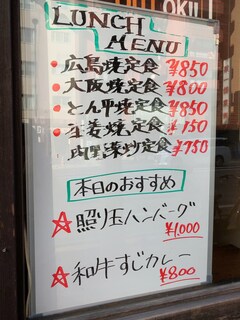 OKU
LUNCH
MENU
• 広島焼定食 ¥850
• 大阪焼定食 ¥800
• とん平焼定食 ¥850
• 生姜焼定食 ¥750
肉野菜炒め定食 ¥750
本日のおすすめ
☆ 照り玉ハンバーグ
¥1,000
☆ 和牛すじカレー
¥800